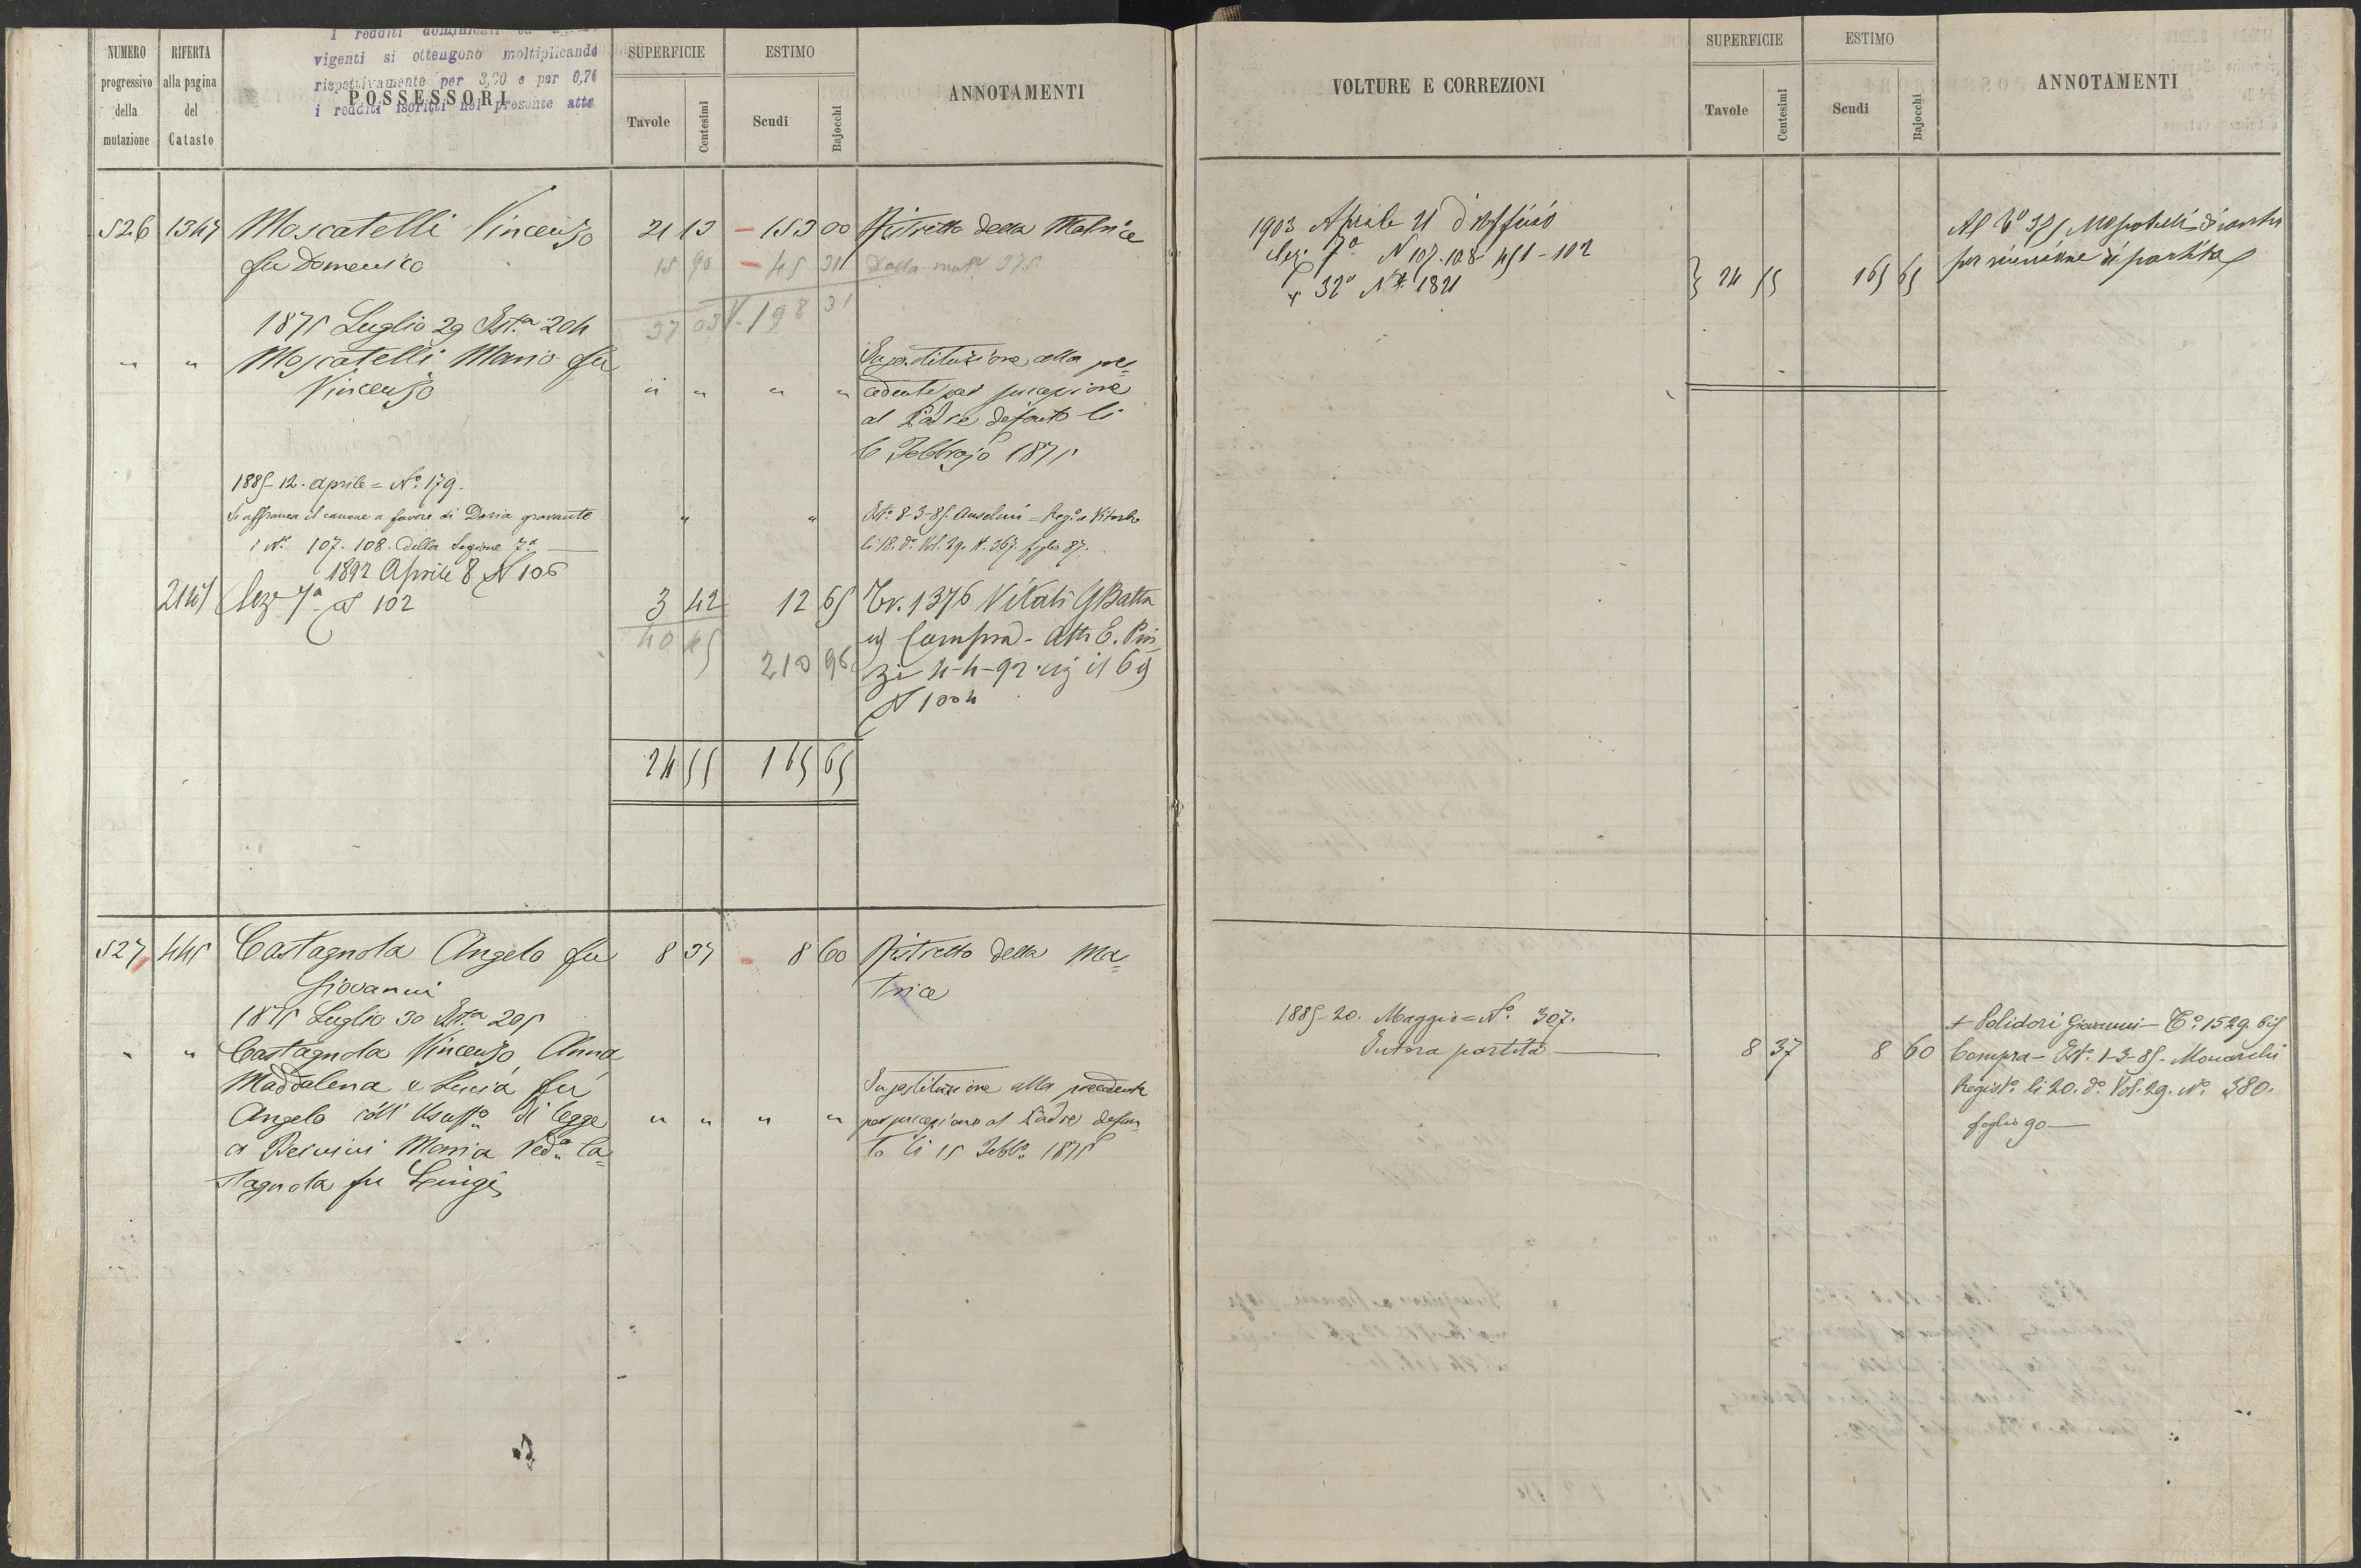 NUMERO progressivo della mutazione
RIFERTA alla pagina del Catasto
I redditi dominicali ed
vigenti si ottengono moltiplicando
rispettivamente per 3,20 e per 0,74
i redditi iscritti nel presente atto
POSSESSORI
SUPERFICIE
Tavole Centesimi
ESTIMO
Scudi Bajocchi
ANNOTAMENTI
526 1347 Moscatelli Vincenzo 21 13 - 153 00 Ristretto della Matrice
fu Domenico 15 90 - 45 31 Dalla mut.e 375
37 03 198 31
1875 Luglio 29 Ist.a 204
" " Moscatelli Mario fu
Vincenzo " " " "
In sostituzione alla pre=
cedente per successione
al Padre defunto li
6 Febbrajo 1875
1885-12. aprile = N.o 179.
Si affranca il canone a favore di Doria gravante " "
i N.i 107. 108. della Sezione 7.a
Ist.o 8-3-85. Anselmi = Reg.o a Viterbo
li 18. d.o Vol. 29. N. 367. foglio 87.
1892 Aprile 8 N 106
2147 Sez. 7a N 102 3 42 12 65 Tr. 1376 Vitali GBatta
40 45 210 96
Compra - Atti E. Pin
zi 4-4-92 reg il 69
N 1004
24 55 165 65
527 445 Castagnola Angelo fu 8 37 - 8 60 Ristretto della Ma=
Giovanni trice
1875 Luglio 30 Ist.a 205
" " Castagnola Vincenzo Anna
Maddalena e Lucia fu
Angelo coll' Usuff.o di legge " " " "
a Bernini Maria Ved.a Ca=
stagnola fu Luigi
In sostituzione alla precedente
per successione al Padre defun
to li 15 Febb.o 1875
VOLTURE E CORREZIONI
SUPERFICIE
Tavole Centesimi
ESTIMO
Scudi Bajocchi
ANNOTAMENTI
1903 Aprile 21 d'Officio
Sez. 7a N 107-108-451-102
" 32a N 1821 24 55 165 65
per riunione di partita
1885-20. Maggio = N.o 307.
Intera partita 8 37 8 60
A Polidori Giovanni - T.o 1529. bis
Compra - Ist.o 1-3-85. Monarchi
Regist.o li 20. d.o Vol. 29. N.o 380.
foglio 90